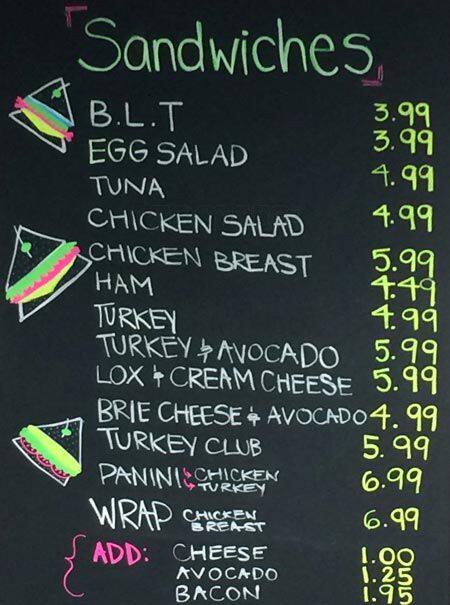 Sandwiches
B.L.T 3.99
EGG SALAD 3.99
TUNA 4.99
CHICKEN SALAD 4.99
CHICKEN BREAST 5.99
HAM 4.49
TURKEY 4.99
TURKEY & AVOCADO 5.99
LOX & CREAM CHEESE 5.99
BRIE CHEESE & AVOCADO 4.99
TURKEY CLUB 5.99
PANINI CHICKEN 6.99
TURKEY
WRAP CHICKEN 6.99
BREAST
ADD: CHEESE 1.00
AVOCADO 1.25
BACON 1.95